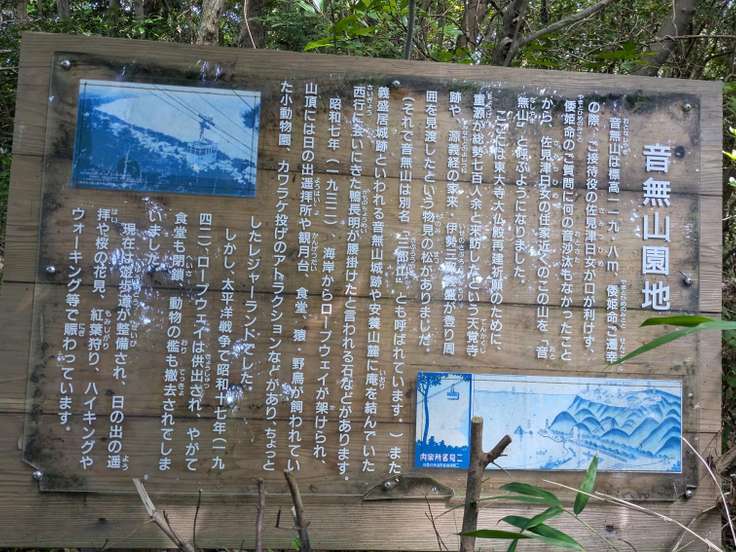 音無山園地
音無山は標高一一九・八m、倭姫命ご遷幸
の際、ご接待役の佐見津日女が口が利けず、
倭姫命のご質問に何の音沙汰もなかったこと
から、佐見津日女の住家近くのこの山を、「音
無山」と呼ぶようになりました。
ここは東大寺大仏殿再建祈願のために、
重源が総勢七百人余と来訪したという天覚寺
跡や、源義経の家来、伊勢三郎義盛が登り周
囲を見渡したという物見の松がありました。
(それで音無山は別名「三郎山」とも呼ばれています。)また
義盛居城跡といわれる音無山城跡や安養山麓に庵を結んでいた
西行に会いにきた鴨長明が腰掛けたと言われる石などがあります。
昭和七年(一九三二)、海岸からロープウェイが架けられ、
山頂には日の出遥拝所や観月台、食堂、猿、野鳥が飼われてい
た小動物園、カワラケ投げのアトラクションなどがあり、ちょっと
したレジャーランドでした。
しかし、太平洋戦争で昭和十七年(一九
四二)、ロープウェイは供出され、やがて
食堂も閉鎖、動物の檻も撤去されてしま
いました。
現在は遊歩道が整備され、日の出の遥
拝や桜の花見、紅葉狩り、ハイキングや
ウォーキング等で賑わっています。
内案所名見二